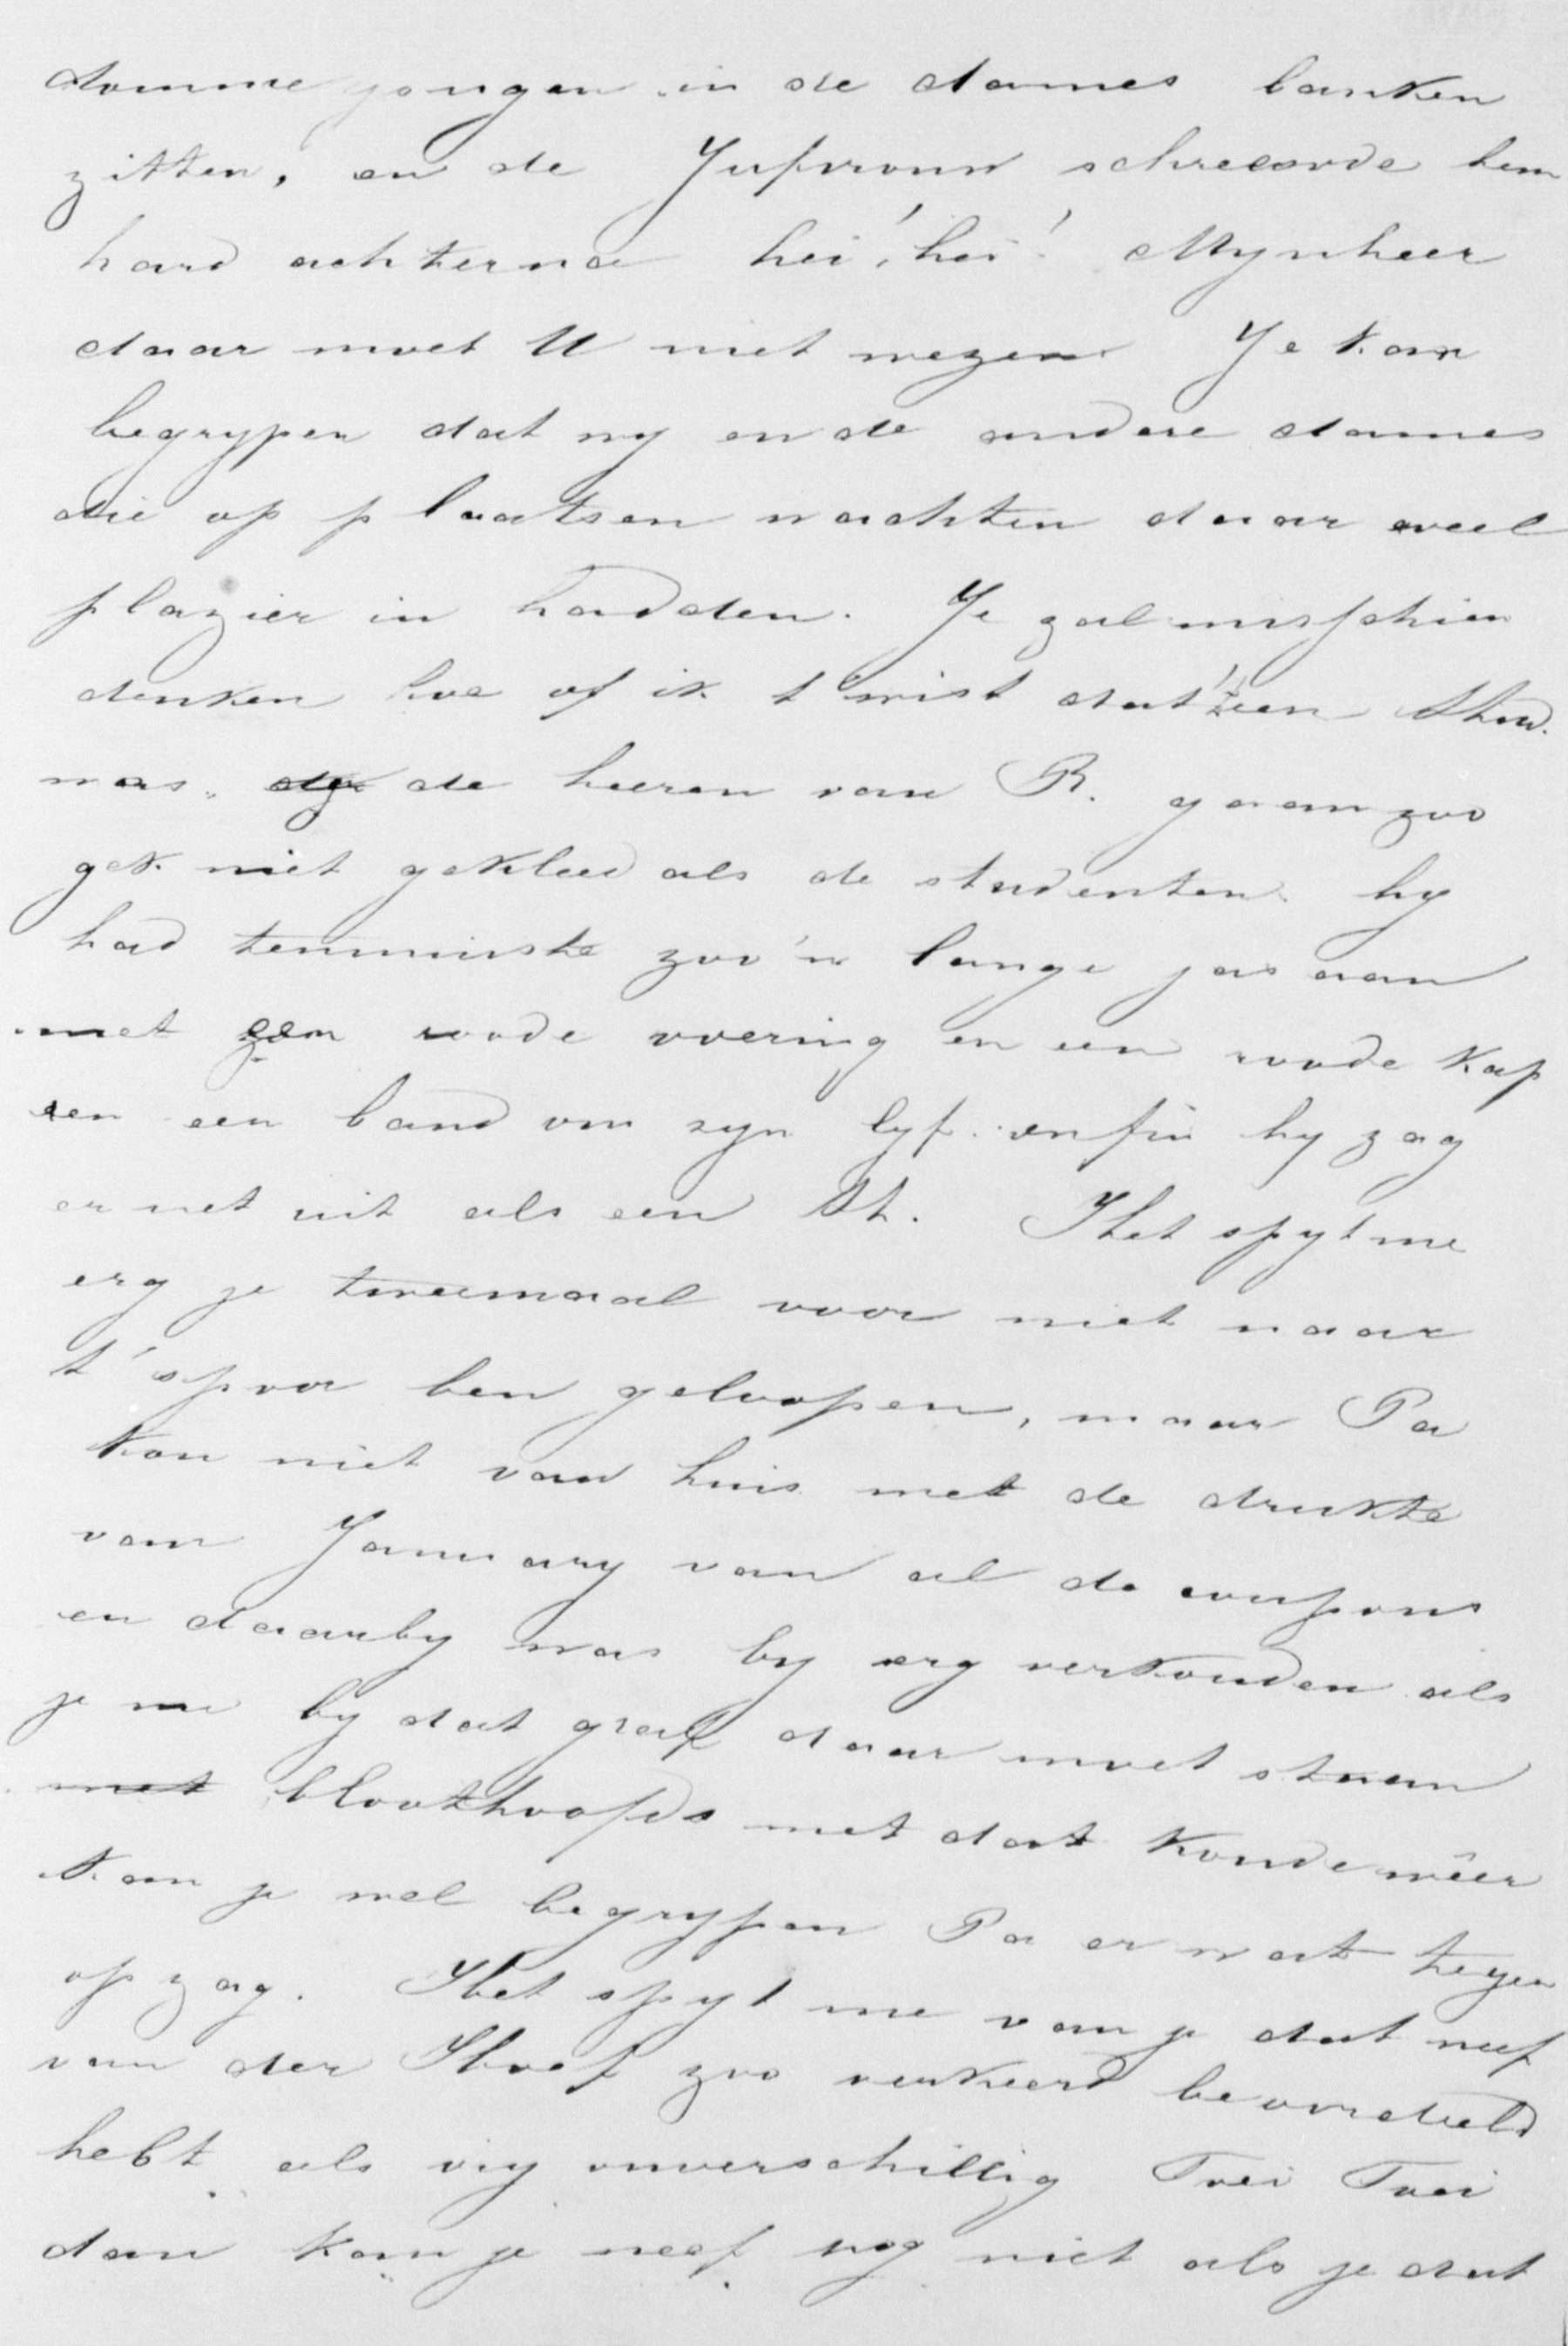 domme jongen in de dames banken
zitten, en de Jufvrouw schreeuwde hem
hard achterna hei! hei! Mynheer
daar moet U niet wezen Je kan
begrypen dat wy en de andere dames
die op plaatsen wachten daar veel
plazier in hadden. Je zal misschien
denken hoe of ik t wist dat 't een Stud.
was. de heeren van R. gaan zoo
gek niet gekleed als de studenten. hy
had tenminste zoo'n lange jas aan
met een roode voering en een roode kap
en een band om zyn lyf. enfin hy zag
er net uit als een St. Het spyt me
erg je tweemaal voor niet naar
t'spoor ben geloopen, maar Pa
kon niet van huis met de drukte
van January van al de coupons
en daarby was hy erg verkouden als
je nu by dat graf daar moet staan
met bloothoofds met dat koude wêer
kan je wel begrypen Pa er wat tegen
op zag. Het spyt me van je dat neef
van der Hoef zoo verkeerd beoordeeld
hebt als vry onverschillig Foei Foei
dan kan je neef nog niet als je dat